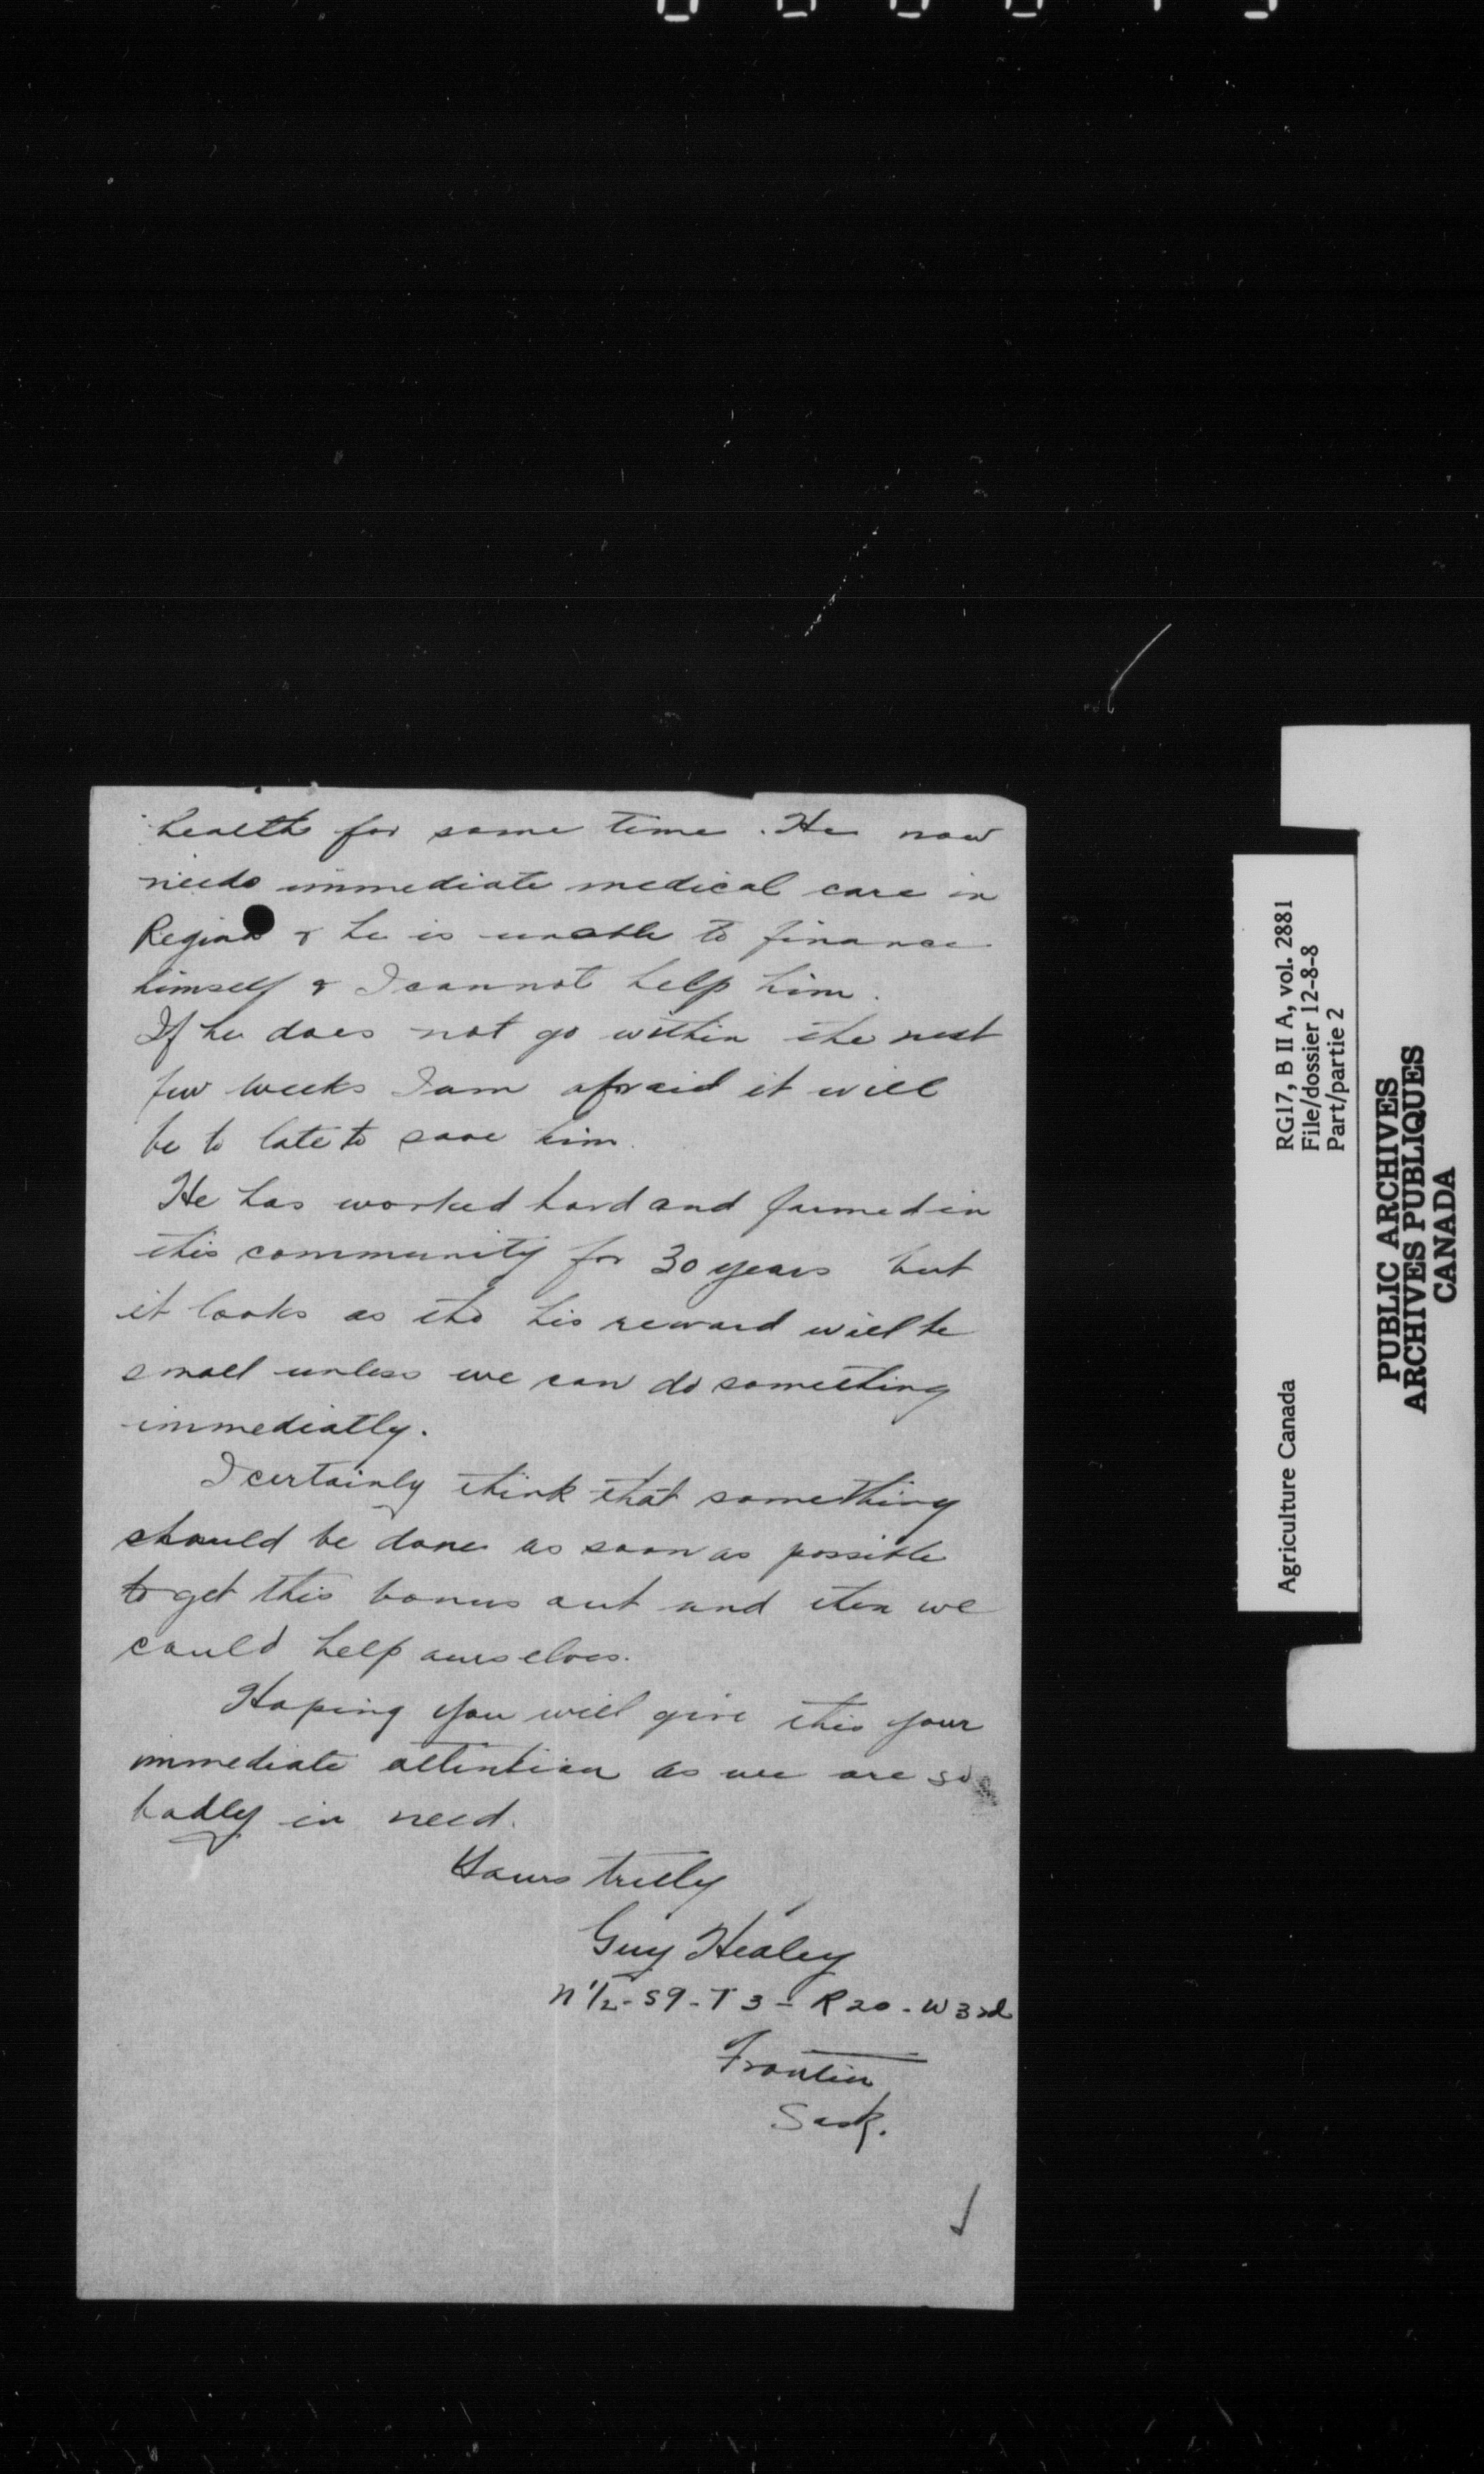 health for some time. He now
needs immediate medical care in
Regina & he is unable to finance
himself & I cannot help him.
If he does not go within the next
few weeks I am afraid it will
be to late to save him.
He has worked hard and farmed in
this community for 30 years but
it looks as tho his reward will be
small unless we can do something
immediatly.
I certainly think that something
should be done as soon as possible
to get this bonus out and then we
could help ourselves.
Hoping you will give this your
immediate attention as we are so
badly in need.
Yours truly
Guy Healey
N 1/2 - S9 - T 3 - R 20 - W 3rd
Frontier
Sask.
Agriculture Canada
RG17, B II A, vol. 2881
File/dossier 12-8-8
Part/partie 2
PUBLIC ARCHIVES
ARCHIVES PUBLIQUES
CANADA